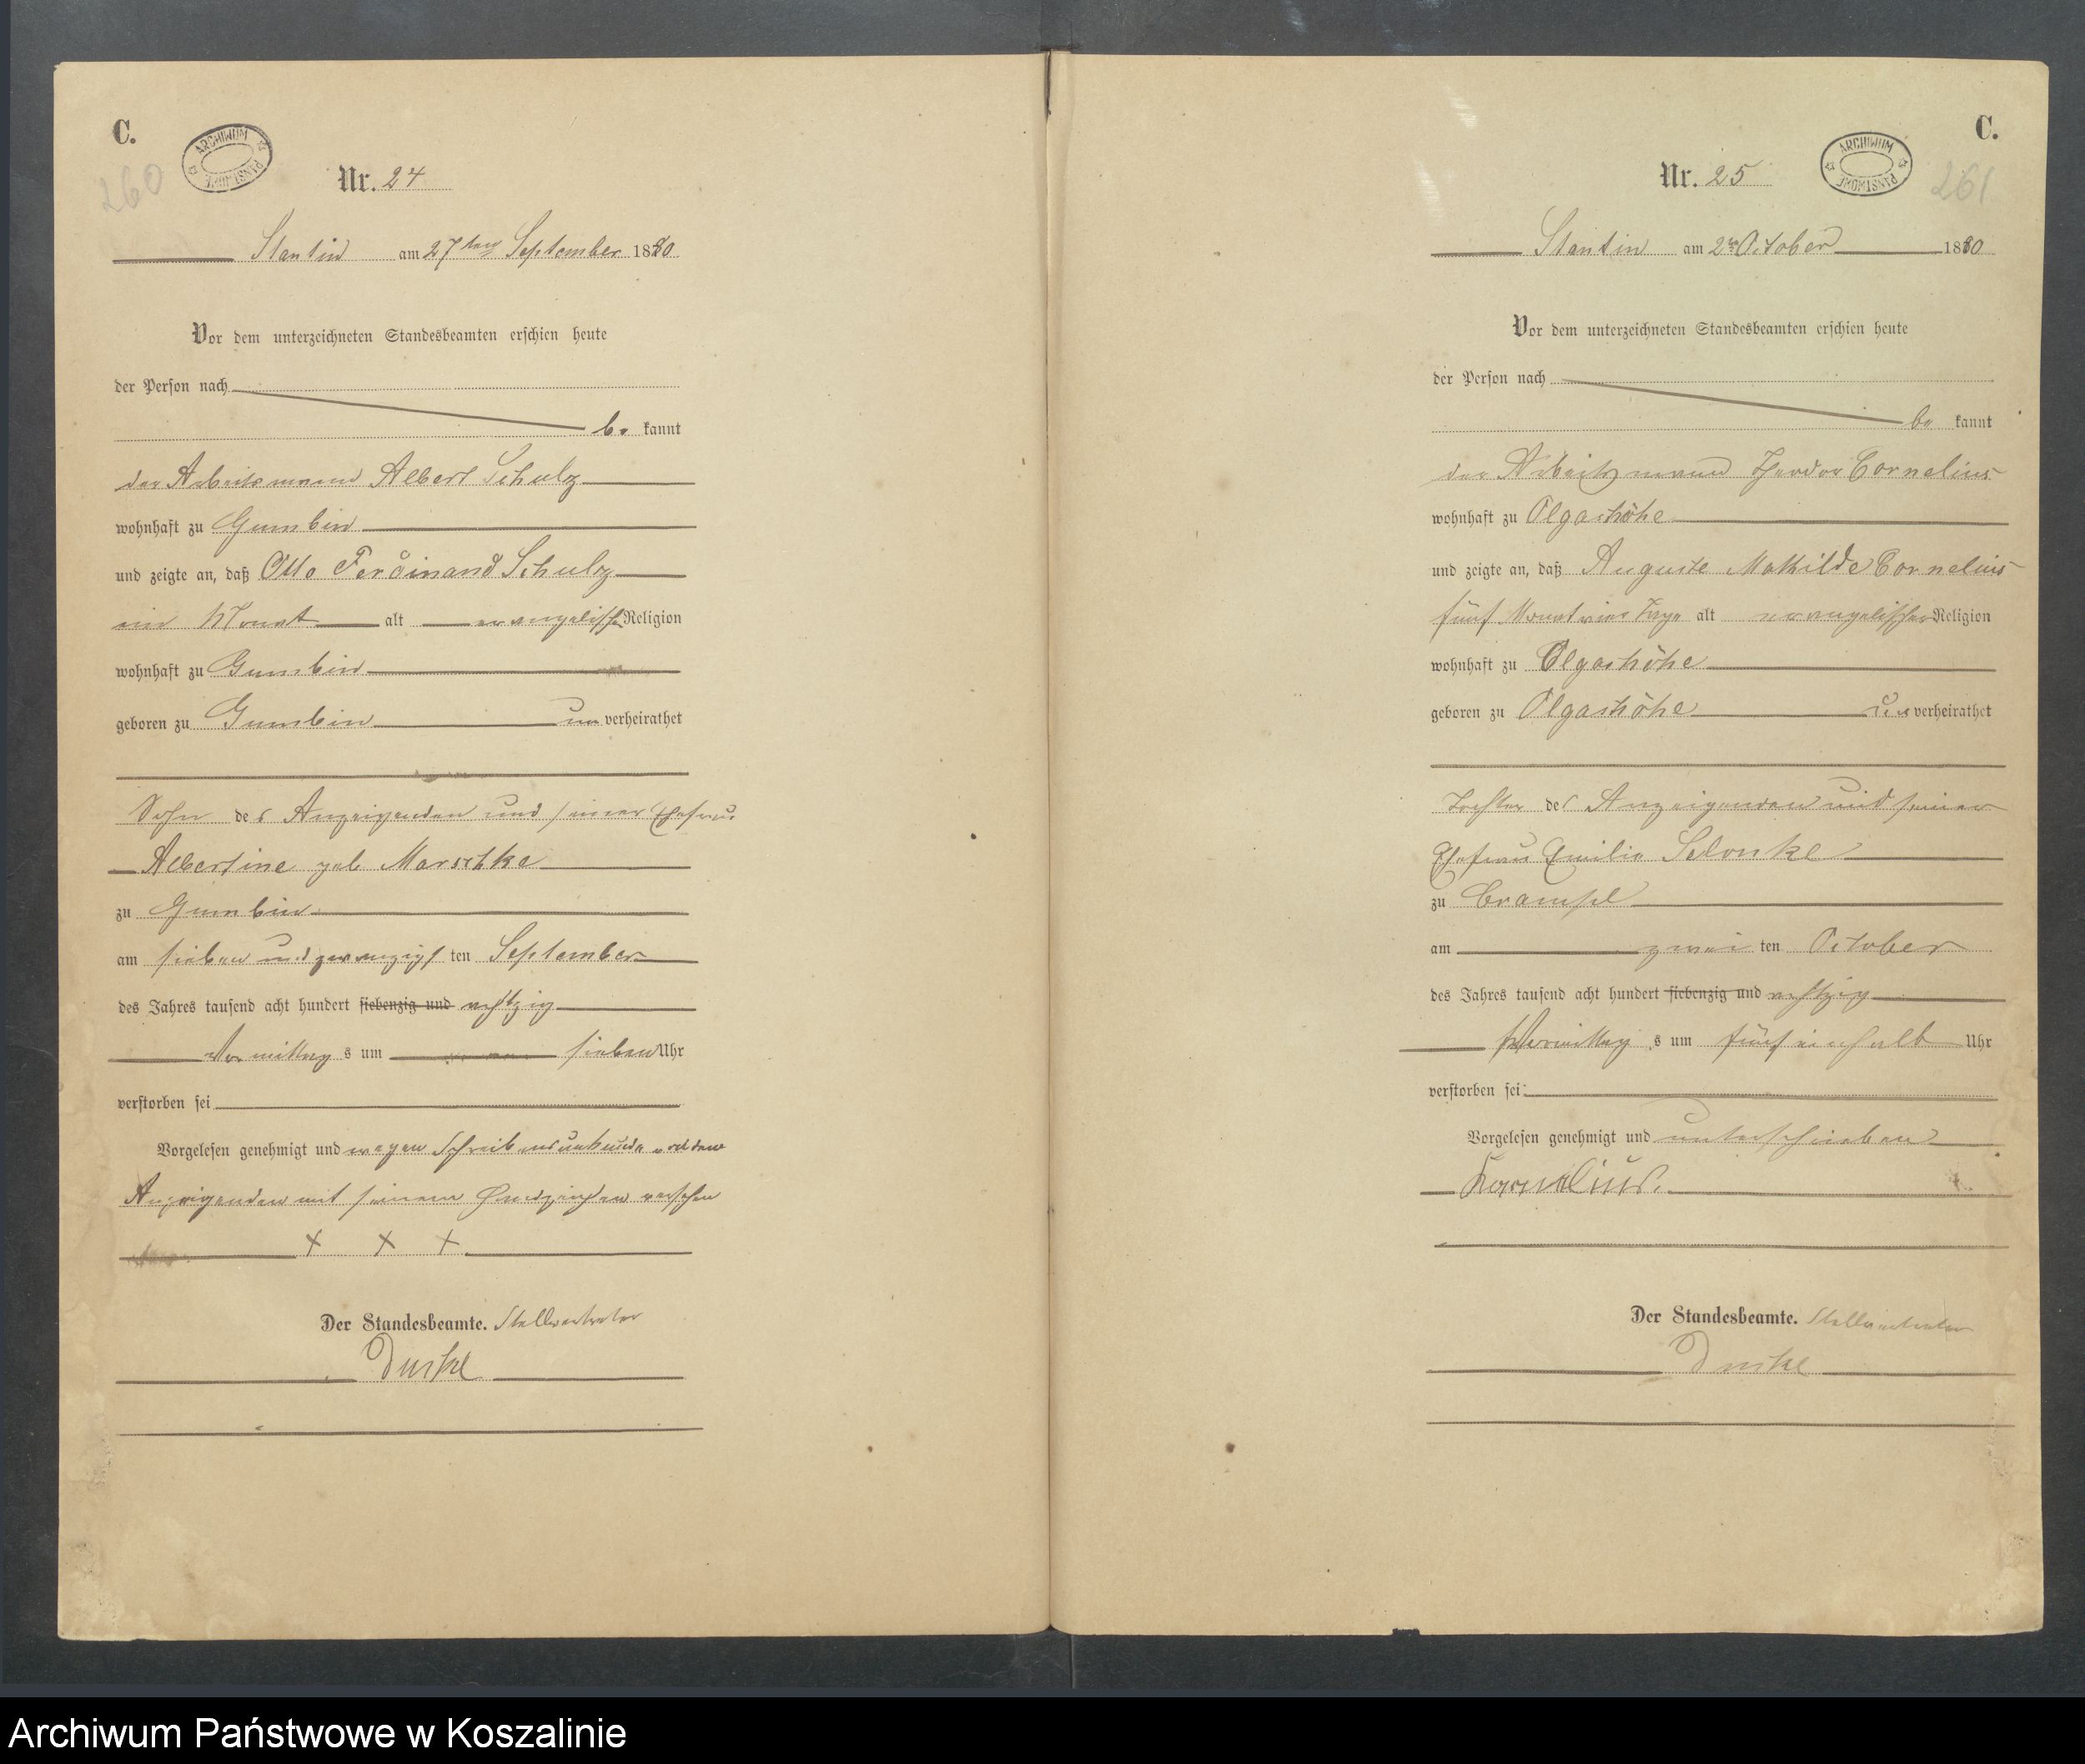 C.
260
ARCHIWUM PAŃSTWOWE
Nr. 24
Stantin am 27ten September 1880
Vor dem unterzeichneten Standesbeamten erschien heute
der Person nach
be kannt
der Arbeitsmann Albert Schulz
wohnhaft zu Gumbin
und zeigte an, daß Otto Ferdinand Schulz
ein Monat alt evangelischer Religion
wohnhaft zu Gumbin
geboren zu Gumbin un verheirathet
Sohn des Anzeigenden und seiner Ehefrau
Albertine geb Marschke
zu Gumbin
am sieben und zwanzigs ten September
des Jahres tausend acht hundert siebenzig und achtzig
Vormittag s um sieben Uhr
verstorben sei
Vorgelesen genehmigt und wegen Schreibensunkunde von dem
Anzeigenden mit seinem Handzeichen versehen
+ + +
Der Standesbeamte. Stellvertreter
C.
261
ARCHIWUM PAŃSTWOWE
Nr. 25
Stantin am 2ten October 1880
Vor dem unterzeichneten Standesbeamten erschien heute
der Person nach
be kannt
der Arbeitsmann Theodor Cornelius
wohnhaft zu Olgashöhe
und zeigte an, daß Auguste Mathilde Cornelius
fünf Monat ein Tage alt evangelischer Religion
wohnhaft zu Olgashöhe
geboren zu Olgashöhe un verheirathet
Tochter des Anzeigenden und seiner
Ehefrau Emilie Selonke
zu
am zwei ten October
des Jahres tausend acht hundert siebenzig und achtzig
Vormittag s um fünf einhalb Uhr
verstorben sei
Vorgelesen genehmigt und unterschrieben
Kornelius.
Der Standesbeamte. Stellvertreter
Archiwum Państwowe w Koszalinie